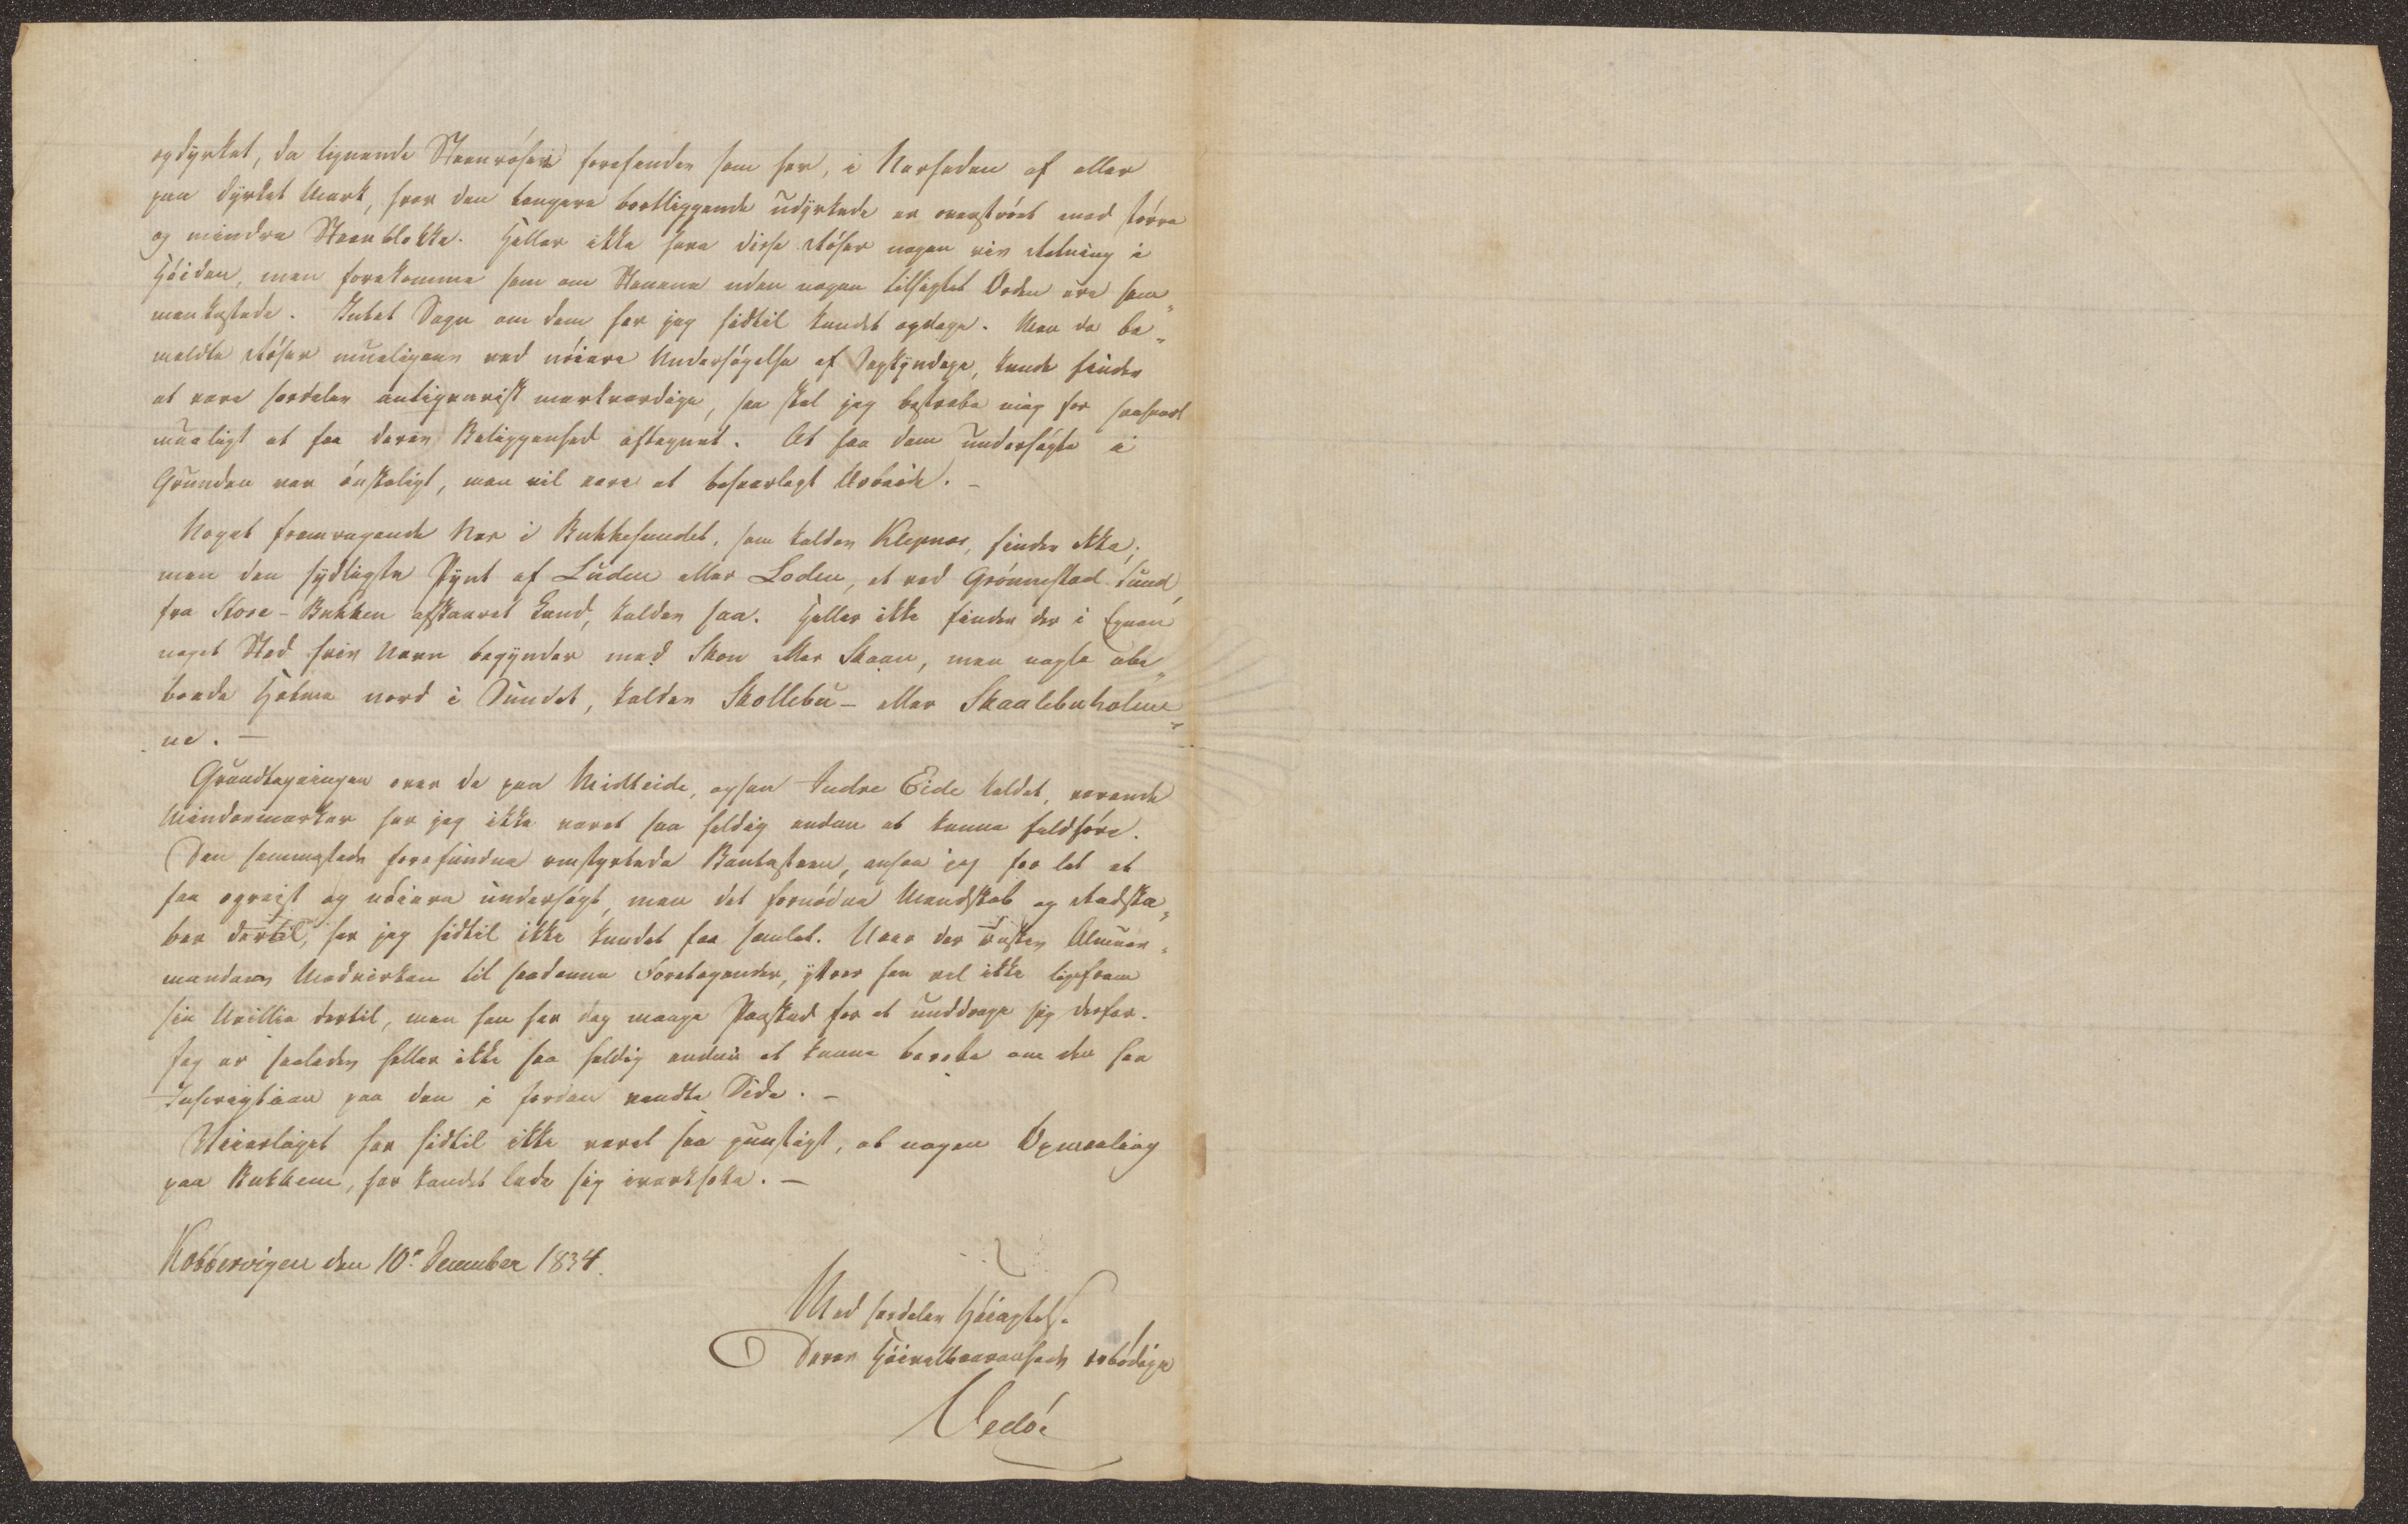 opdyrket, da lignende Steenröser forefindes som her, i Nærheden af eller
paa dyrket Mark, hvor den længere bortliggende udyrkede er overströet med större
og mindre Steenblokke. Heller ikke have disse Röser nogen vis Retning i
Höiden, men forekomme som om Stenene uden nogen tilsigtet Orden ere sam„
menkastede. Intet Sagn om dem har jeg hidtil kundet opdage. Men da be„
meldte Röser mueligens ved nöiere Undersögelse af Sagkyndige, kunde findes
at være særdeles antiqvarisk mærkværdige, saa skal jeg bestræbe mig for saasnart
mueligt at faa deres Beliggenhed aftegnet. At faa dem undersögte i
Grunden var önskeligt, men vil være et besværligt Arbeide. –
Noget fremragende Næs i Bukkesundet, som kaldes Klepnæs, findes ikke;
men den sydligste Pynt af Luden eller Loden, et ved Grönnestad Sund,
fra Store-Bukken afskaaret Land, kaldes saa. Heller ikke findes der i Egnen
noget Sted hvis Navn begynder med Skon eller Skaan, men nogle ube„
boede Holme nord i Sundet, kaldes Skollebu- eller Skaalebuholme„
ne. –
Grundtegningen over de paa Midteide, ogsaa Indre Eide kaldet, værende
Mindesmærker har jeg ikke været saa heldig endnu at kunne fuldföre.
Den sammesteds forefundne omstyrtede Bautasteen, ansaae jeg for let at
faa opreist og nöiere undersögt, men det fornödne Mandskab og Redska„
ber dertil, har jeg hidtil ikke kundet faa samlet. Naar der önskes Almues„
mandens Medvirken til saadanne Foretagender, yttrer han vel ikke ligefrem
sin Uvillie dertil, men han har dog mange Paaskud for at unddrage sig derfor.
Jeg er saaledes heller ikke saa heldig endnu at kunne berette om der har
Inscription paa den i Jorden vendte Side. –
Veierliget har hidtil ikke været saa gunstigt, at nogen Opmaaling
paa Bukken, har kundet lade sig iværksætte. –
Kobbervigen den 10de December 1834.
Med særdeles Höiagtelse
Deres Höivelbaarenheds ærbödige
Vedöe